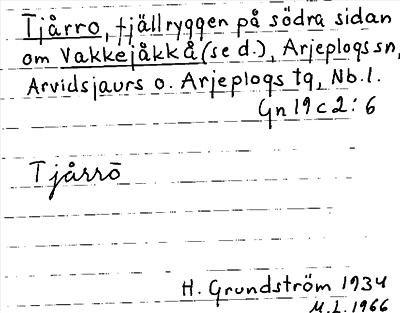 Tjårro, fjällryggen på södra sidan
om Vakkejåkkå (se d.), Arjeplogs sn,
Arvidsjaurs o. Arjeplogs tg, Nb. l.
Gn 19 c 2 : 6
Tjårrō
H. Grundström 1934
M. L. 1966